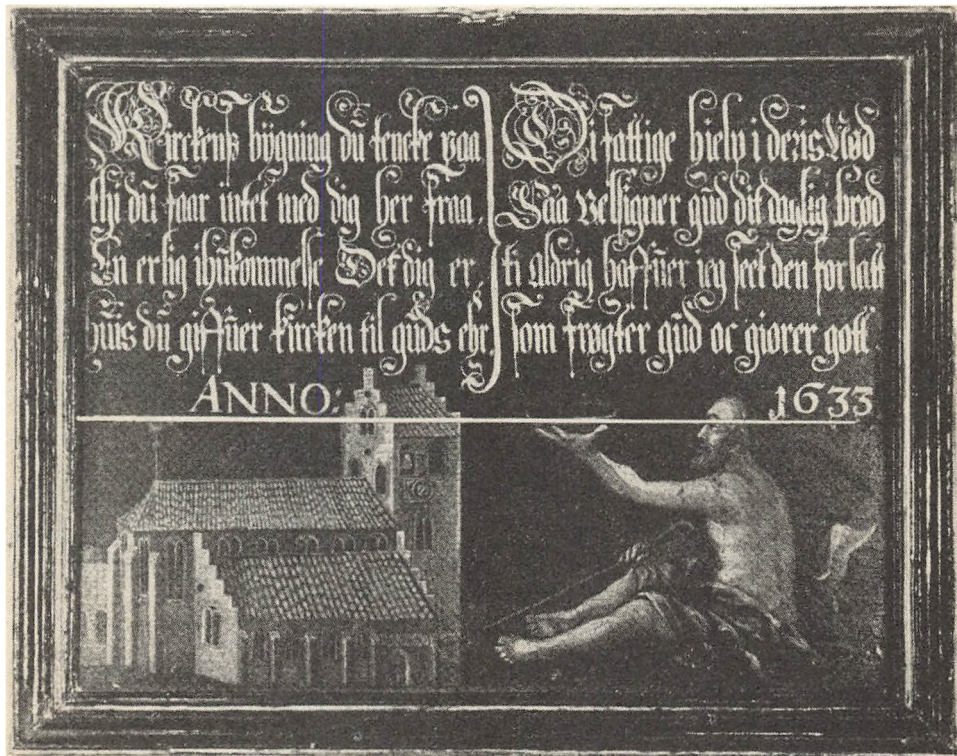 Kirckens bÿgning du tencke paa
thi du faar intet med dig her fraa.
En erlig ihukommelse Det dig er,
huis du giffuer kircken til guds ehr.
Di fattige hielp i deris Nød
Saa velsigner gud dit daglig brød
ti aldrig haffuer ieg seet den forlatt
som frøgter gud oc giører gott.
ANNO: 1633